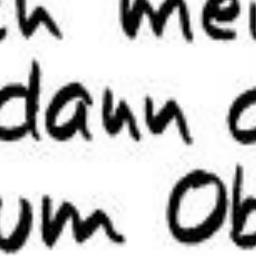 ch mei
dann d
um Ob